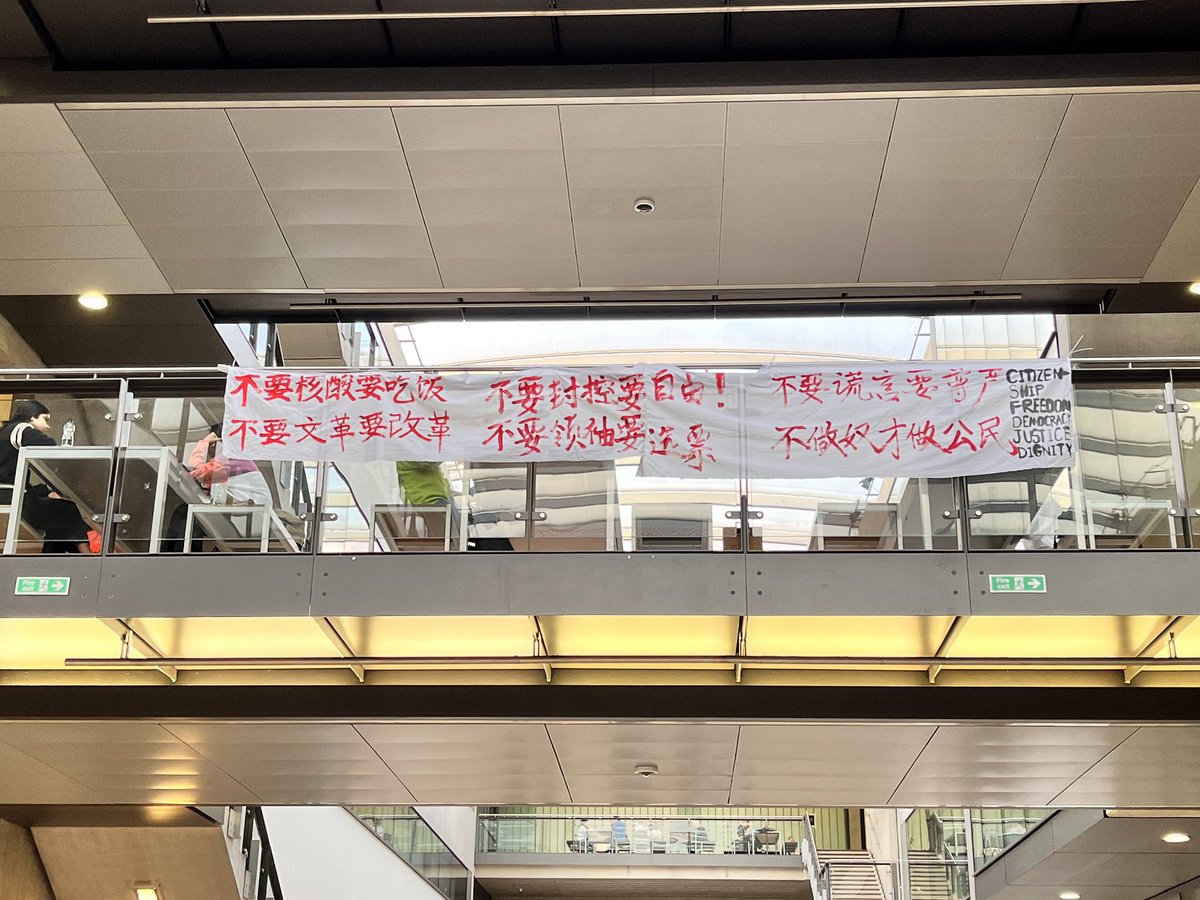 不要核酸要吃饭 不要封控要自由！ 不要谎言要尊严
不要文革要改革 不要领袖要选票 不做奴才做公民
CITIZEN-
SHIP
FREEDOM
DEMOCRACY
JUSTICE
DIGNITY
Fire
exit
Fire
exit